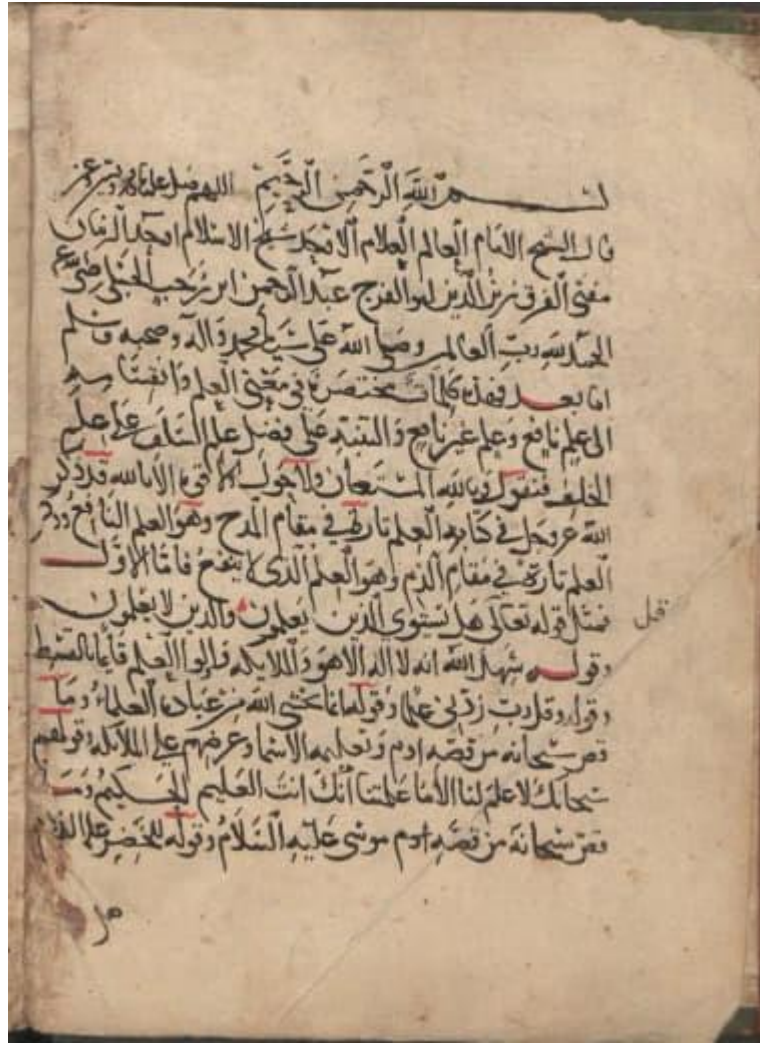 بسم الله الرحمن الرحيم اللهم صل على محمد
قال الشيخ الامام العالم العلام الاوحد شيخ الاسلام اوحد الزمان
مفتي الفرق زين الدين ابو الفرج عبد الرحمن ابن رجب الحنبلي رضي الله
الحمد لله رب العالمين وصلى الله على سيدنا محمد واله وصحبه وسلم
اما بعد فهذه كلمات مختصرة في معنى العلم وانقسامه
الى علم نافع وعلم غير نافع والتنبيه على فضل علم السلف على علم
الخلف فنقول وبالله المستعان ولا حول ولا قوة الا بالله قد ذكر
الله عز وجل في كتابه العلم تارة في مقام المدح وهو العلم النافع وذكر
العلم تارة في مقام الذم وهو العلم الذي لا ينفع فاما الاول
فمثل قوله تعالى هل يستوى الذين يعلمون والذين لا يعلمون
وقوله شهد الله انه لا اله الا هو والملايكة واولوا العلم قايما بالقسط
وقوله وقل رب زدني علما وقوله انما يخشى الله من عباده العلماء وما
قص سبحانه من قصه ادم وتعليمه الاسما وعرضهم على الملائكة وقولهم
سبحانك لا علم لنا الا ما علمتنا انك انت العليم الحكيم وما
قص سبحانه من قصه ادم موسى عليه السلام وقوله للخضر